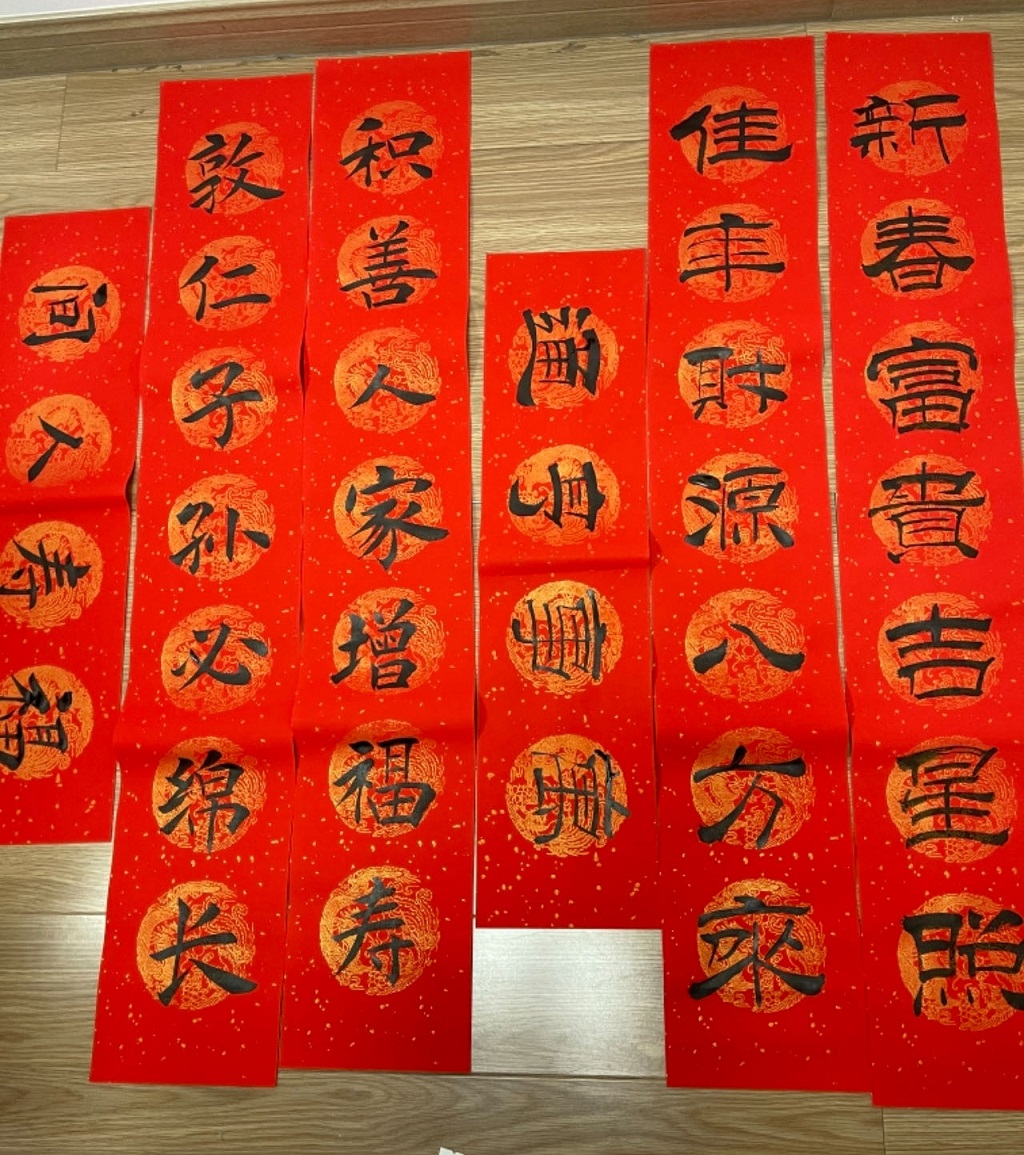 新春富貴吉星照
佳年財源八方來
萬事亨通
积善人家增福寿
敦仁子孙必绵长
福寿人间